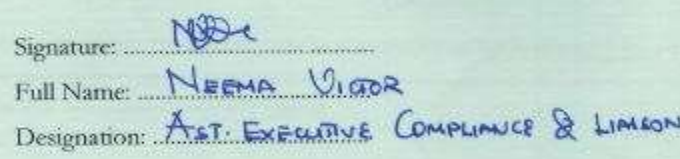 Signature: ........................................
Full Name: NEEMA VICTOR
Designation: AST. EXECUTIVE COMPLIANCE & LIAISON